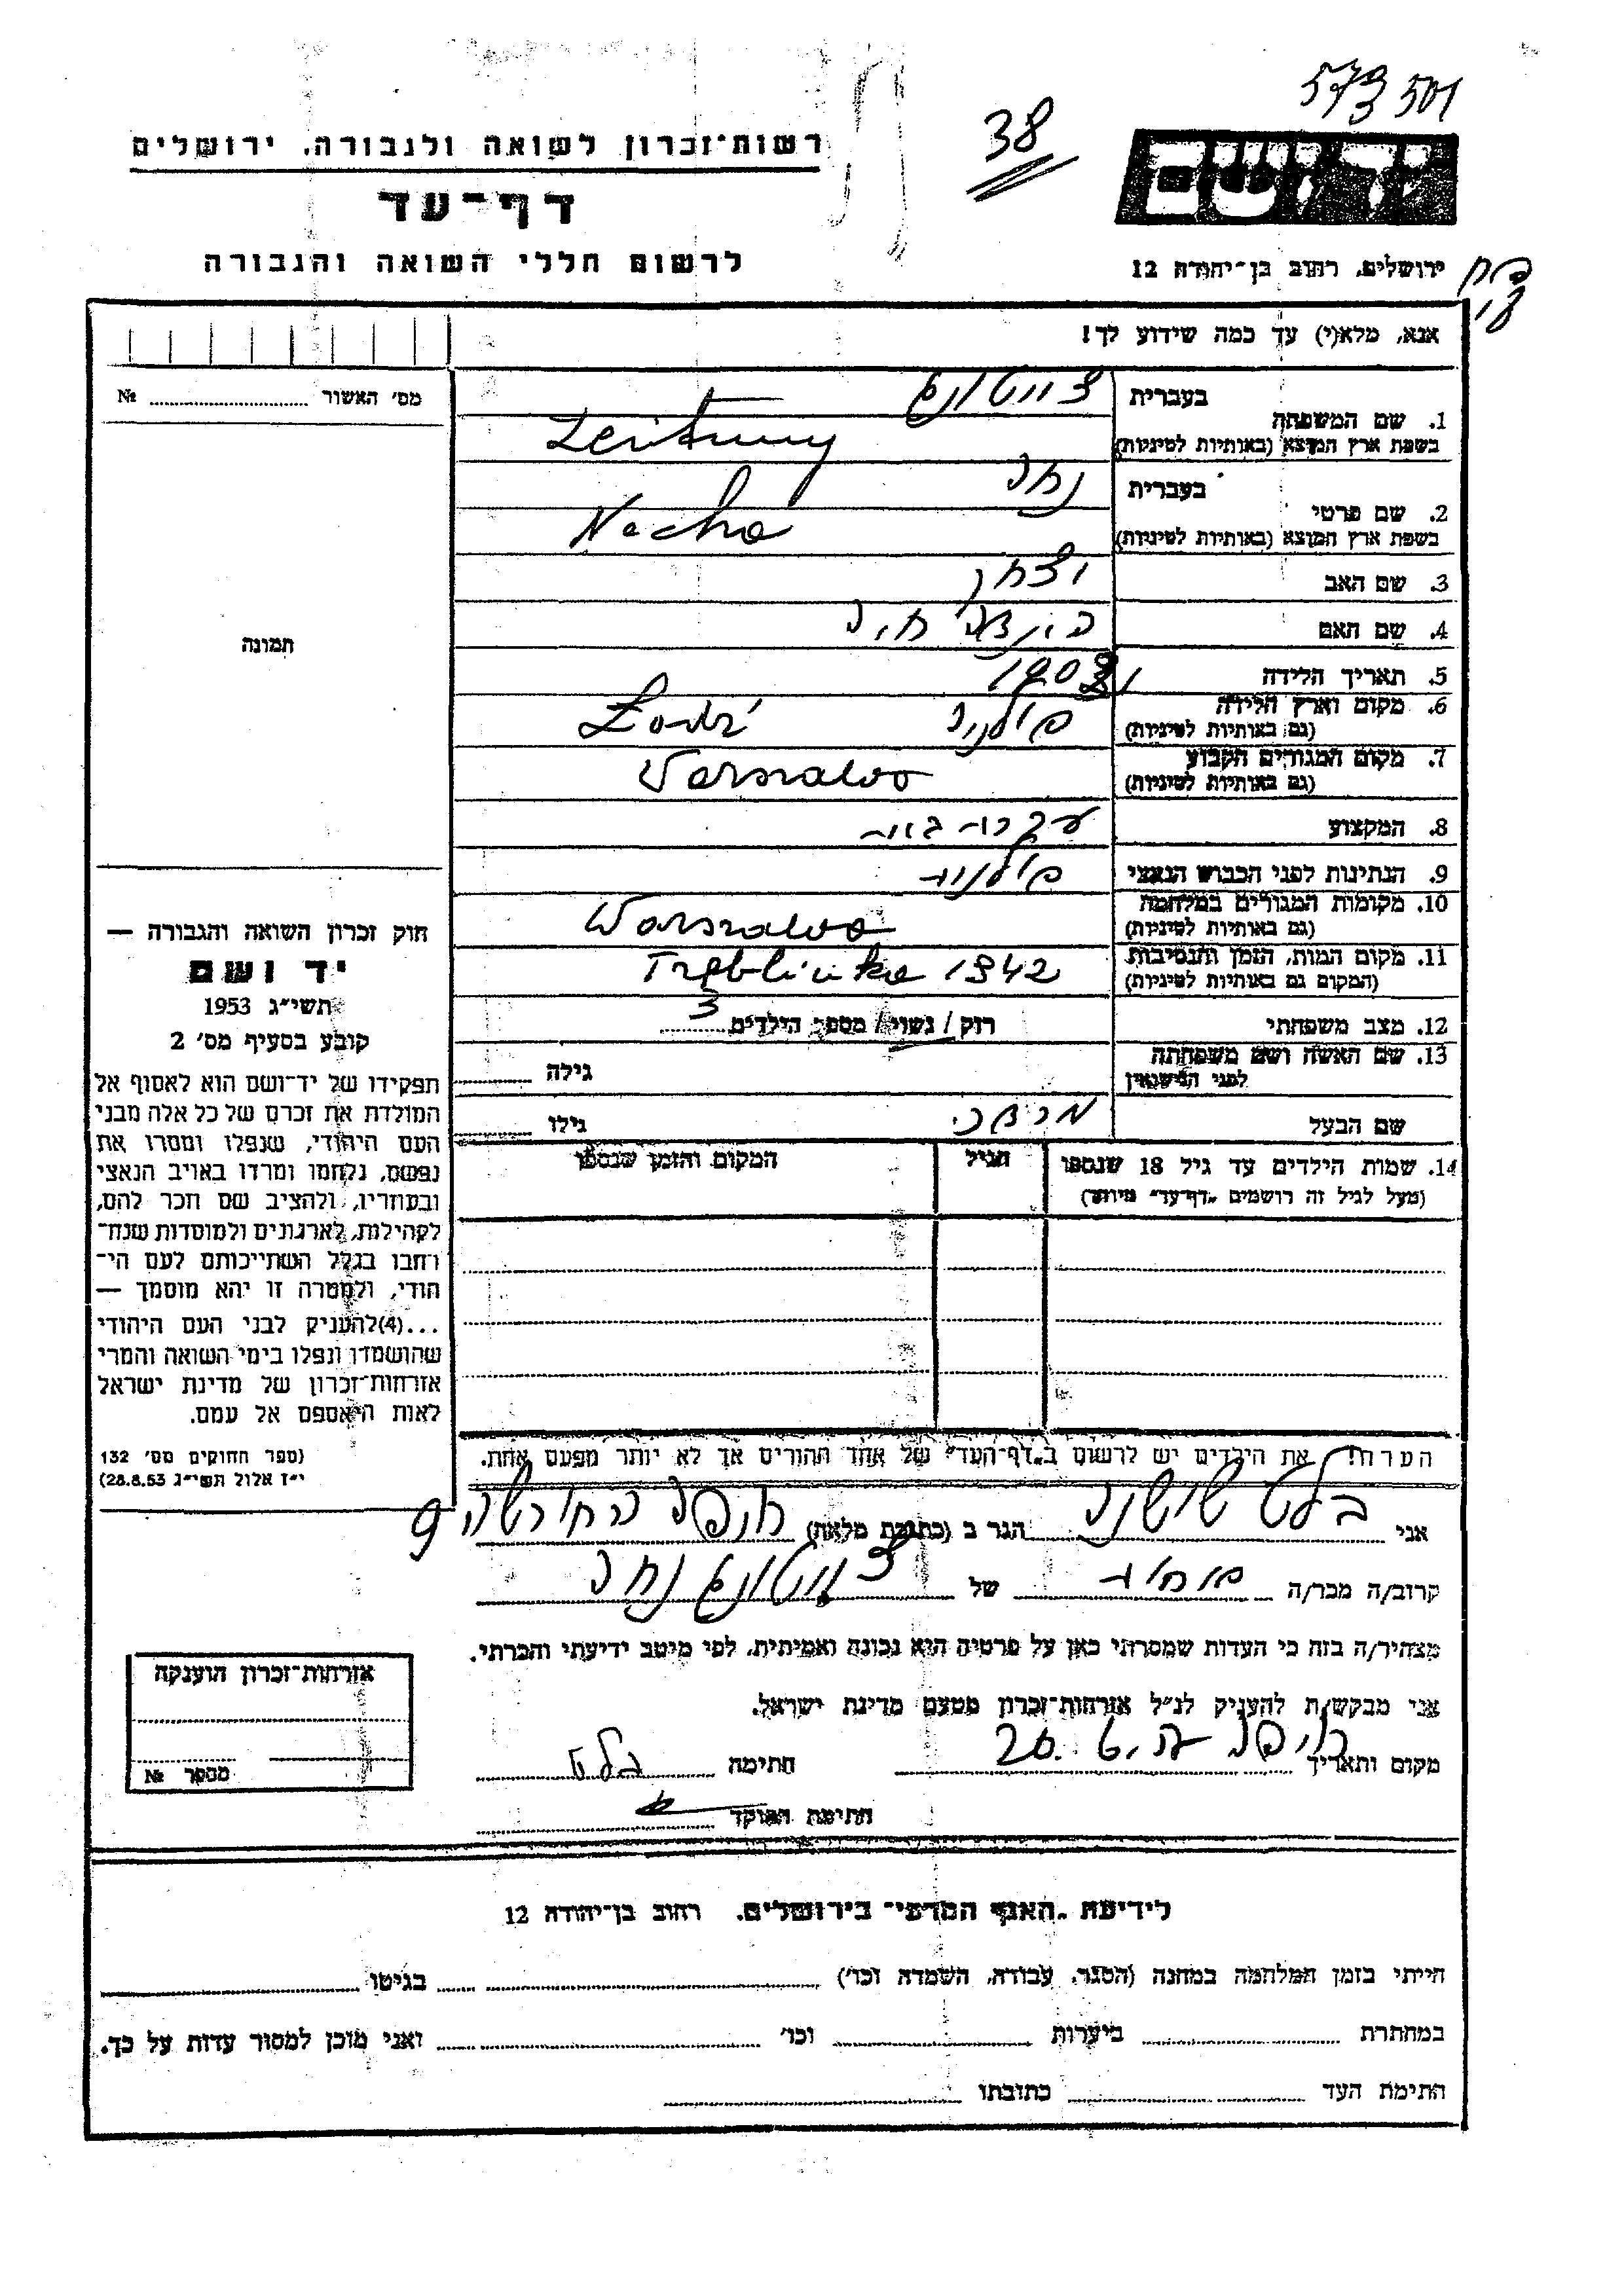 573 501
38
רשות־זכרון לשואה ולגבורה, ירושלים
יד ושם
דף־עד
לרשום חללי השואה והגבורה
ירושלים, רחוב בן־יהודה 12
אנא, מלא(י) עד כמה שידוע לך!
מס׳ האשור № 
1. שם המשפחה
בעברית צייטונג
בשפת ארץ המוצא (באותיות לטיניות) Zeitung
2. שם פרטי
בעברית נחה
בשפת ארץ המוצא (באותיות לטיניות) Necha
3. שם האב יצחק
4. שם האם
5. תאריך הלידה
6. מקום וארץ הלידה (גם באותיות לטיניות) פולניה Łodź
7. מקום המגורים הקבוע (גם באותיות לטיניות) Warszawa
8. המקצוע עקרת בית
9. הנתינות לפני הכבוש הנאצי פולנית
10. מקומות המגורים במלחמה (גם באותיות לטיניות) Warszawa
11. מקום המות, הזמן והנסיבות (המקום גם באותיות לטיניות) Treblinka 1942
12. מצב משפחתי רוק / נשוי / מספר הילדים 3
13. שם האשה ושם משפחתה לפני הנישואין גילה
שם הבעל מרדכי גילו
14. שמות הילדים עד גיל 18 שנספו
(מעל לגיל זה רושמים „דף־עד״ מיוחד)
הגיל
המקום והזמן שנספו
הערה! את הילדים יש לרשום ב„דף־העד״ של אחד ההורים אך לא יותר מפעם אחת.
תמונה
חוק זכרון השואה והגבורה —
יד ושם
תשי״ג 1953
קובע בסעיף מס׳ 2
תפקידו של יד־ושם הוא לאסוף אל
המולדת את זכרם של כל אלה מבני
העם היהודי, שנפלו ומסרו את
נפשם, נלחמו ומרדו באויב הנאצי
ובעוזריו, ולהציב שם וזכר להם,
לקהילות, לארגונים ולמוסדות שנח־
רחבו בגלל השתייכותם לעם הי־
הודי, ולמטרה זו יהא מוסמך —
...(4)להעניק לבני העם היהודי
שהושמדו ונפלו בימי השואה והמרי
אזרחות־זכרון של מדינת ישראל
לאות היאספם אל עמם.
(ספר החוקים מס׳ 132
י״ז אלול תשי״ג 28.8.53)
אני בלט שושנה הגר ב (כתובת מלאה) חיפה החורשה 9
קרוב/ה מכר/ה של צייטונג נחה
מצהיר/ה בזה כי העדות שמסרתי כאן על פרטיה היא נכונה ואמיתית, לפי מיטב ידיעתי והכרתי.
אני מבקש/ת להעניק לנ״ל אזרחות־זכרון מטעם מדינת ישראל.
מקום ותאריך חיפה חתימה בלט
חתימת הפוקד
אזרחות־זכרון הוענקה
מספר №
לידיעת „האגף המדעי״ בירושלים, רחוב בן־יהודה 12
הייתי בזמן המלחמה במחנה (הסגר, עבודה, השמדה וכו׳) בגיטו
במחתרת ביערות וכו׳ ואני מוכן למסור עדות על כך.
חתימת העד כתובתו